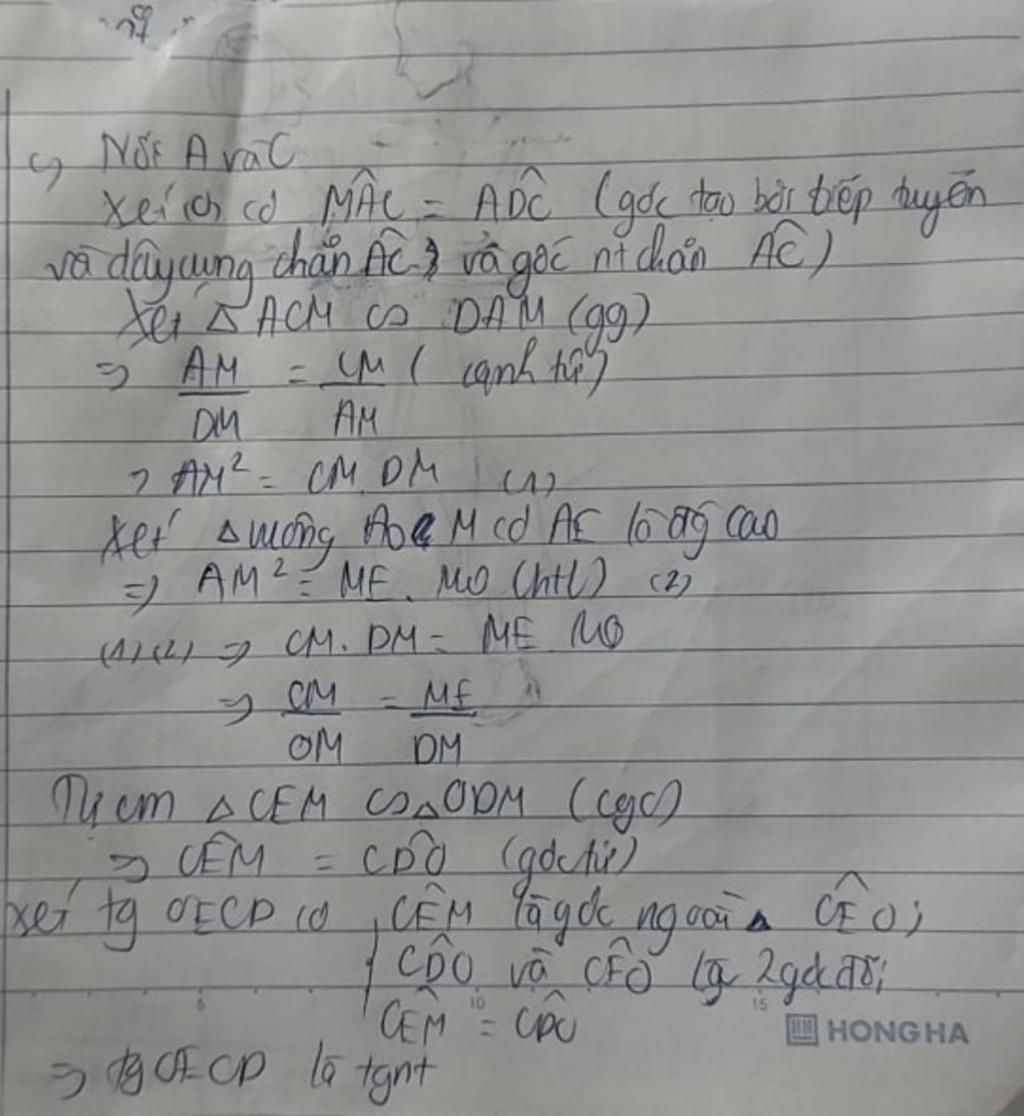 c) Nối A và C
Xét (O) có M̂AC = ÂDC (góc tạo bởi tiếp tuyến
và dây cung chắn ÂC và góc nt chắn ÂC)
Xét △ ACM ∽ DAM (gg)
=> AM/DM = CM/AM (cạnh tư)
=> AM² = CM. DM (1)
Xét △ vuông AOM có AE là đg cao
=> AM² = ME. MO (htl) (2)
(1) (2) => CM. DM = ME MO
=> CM/OM = ME/DM
Tự cm △ CEM ∽ △ ODM (cgc)
=> CÊM = CD̂O (góc tư)
Xét tg OECD có CÊM là góc ngoài CÊO;
CD̂O và CÊO là 2 góc đối;
CÊM = CD̂O
=> tg OECD là tgnt
6 10 15
HONG HA